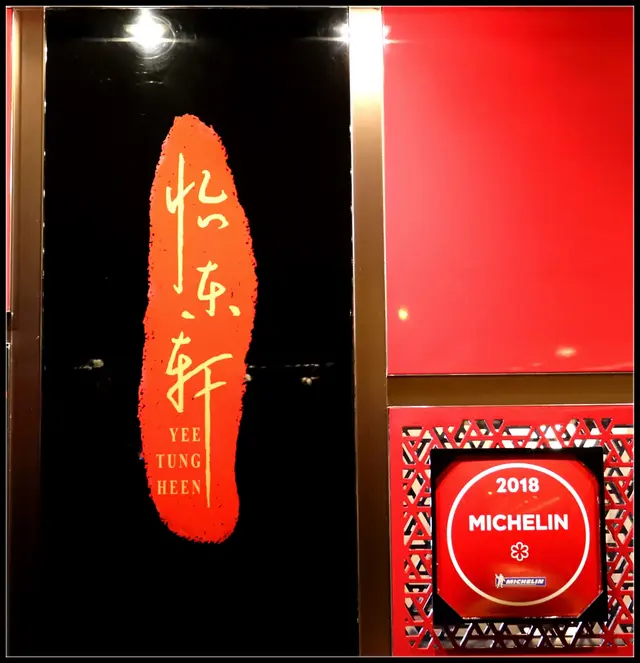 怡东轩
YEE
TUNG
HEEN
2018
MICHELIN
MICHELIN